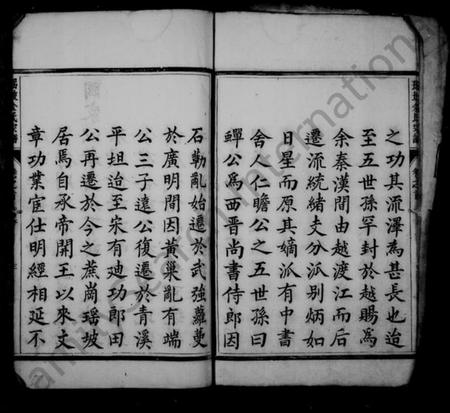 之功其流澤為甚長也迨
至五世孫罕封於越賜為
余秦漢間由越渡江而后
遷流統緒支分派別炳如
日星而原其嫡派有中書
舍人仁瞻公之五世孫曰
蟬公為西晋尚書侍郎因
石勒亂始遷於武強蘿蔓
於廣明間因黃巢亂有端
公三子遠公復遷於青溪
平坦迨至宋有廸功郎田
公再遷於今之蔗崗瑶坡
居焉自承帝開王以來文
章功業宦仕明經相延不